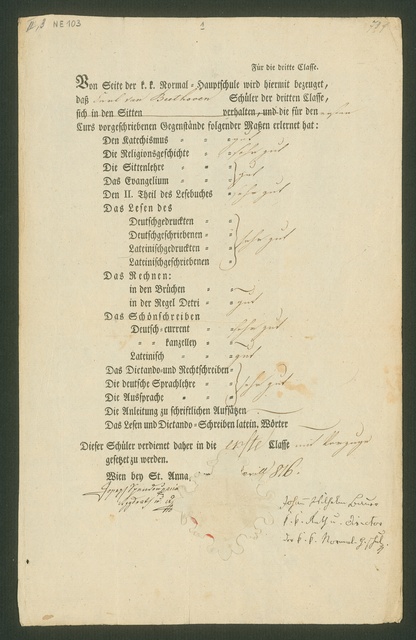 NE 103
1
Für die dritte Classe.
Von Seite der k. k. Normal-Hauptschule wird hiermit bezeuget,
daß Karl van Beethoven Schüler der dritten Classe,
sich in den Sitten verhalten, und die für den
Curs vorgeschriebenen Gegenstände folgender Maßen erlernet hat:
Den Katechismus " " gut
Die Religionsgeschichte " sehr gut
Die Sittenlehre " "
Das Evangelium " " gut
Den II. Theil des Lesebuches sehr gut
Das Lesen des
Deutschgedruckten "
Deutschgeschriebenen "
Lateinischgedruckten " sehr gut
Lateinischgeschriebenen
Das Rechnen:
in den Brüchen "
in der Regel Detri " gut
Das Schönschreiben
Deutsch-current " sehr gut
" " kanzelley "
Lateinisch " " gut
Das Dictando- und Rechtschreiben
Die deutsche Sprachlehre " sehr gut
Die Aussprache " "
Die Anleitung zu schriftlichen Aufsätzen
Das Lesen und Dictando-Schreiben latein. Wörter
Dieser Schüler verdienet daher in die erste Classe mit Vorzug
gesetzet zu werden.
Wien bey St. Anna, April 1816.
Joseph
Johann Wilhelm Bauer
k. k. Rath u. Director
der k. k. Normal